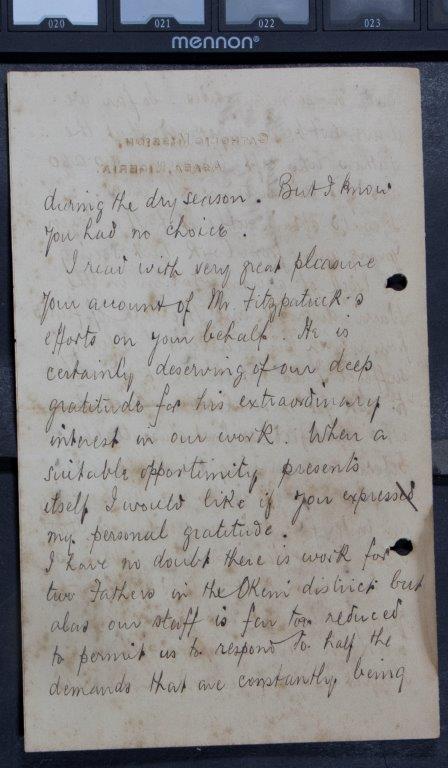 020 021 022 023
mennon®
CATHOLIC MISSION,
ASABA, NIGERIA.
during the dry season. But I know
you had no choice.
I read with very great pleasure
your account of Mr. Fitzpatrick's
efforts on your behalf. He is
certainly deserving of our deep
gratitude for his extraordinary
interest in our work. When a
suitable opportunity presents
itself I would like if you expressed
my personal gratitude.
I have no doubt there is work for
two Fathers in the Okeni district but
alas our staff is far too reduced
to permit us to respond to half the
demands that are constantly being